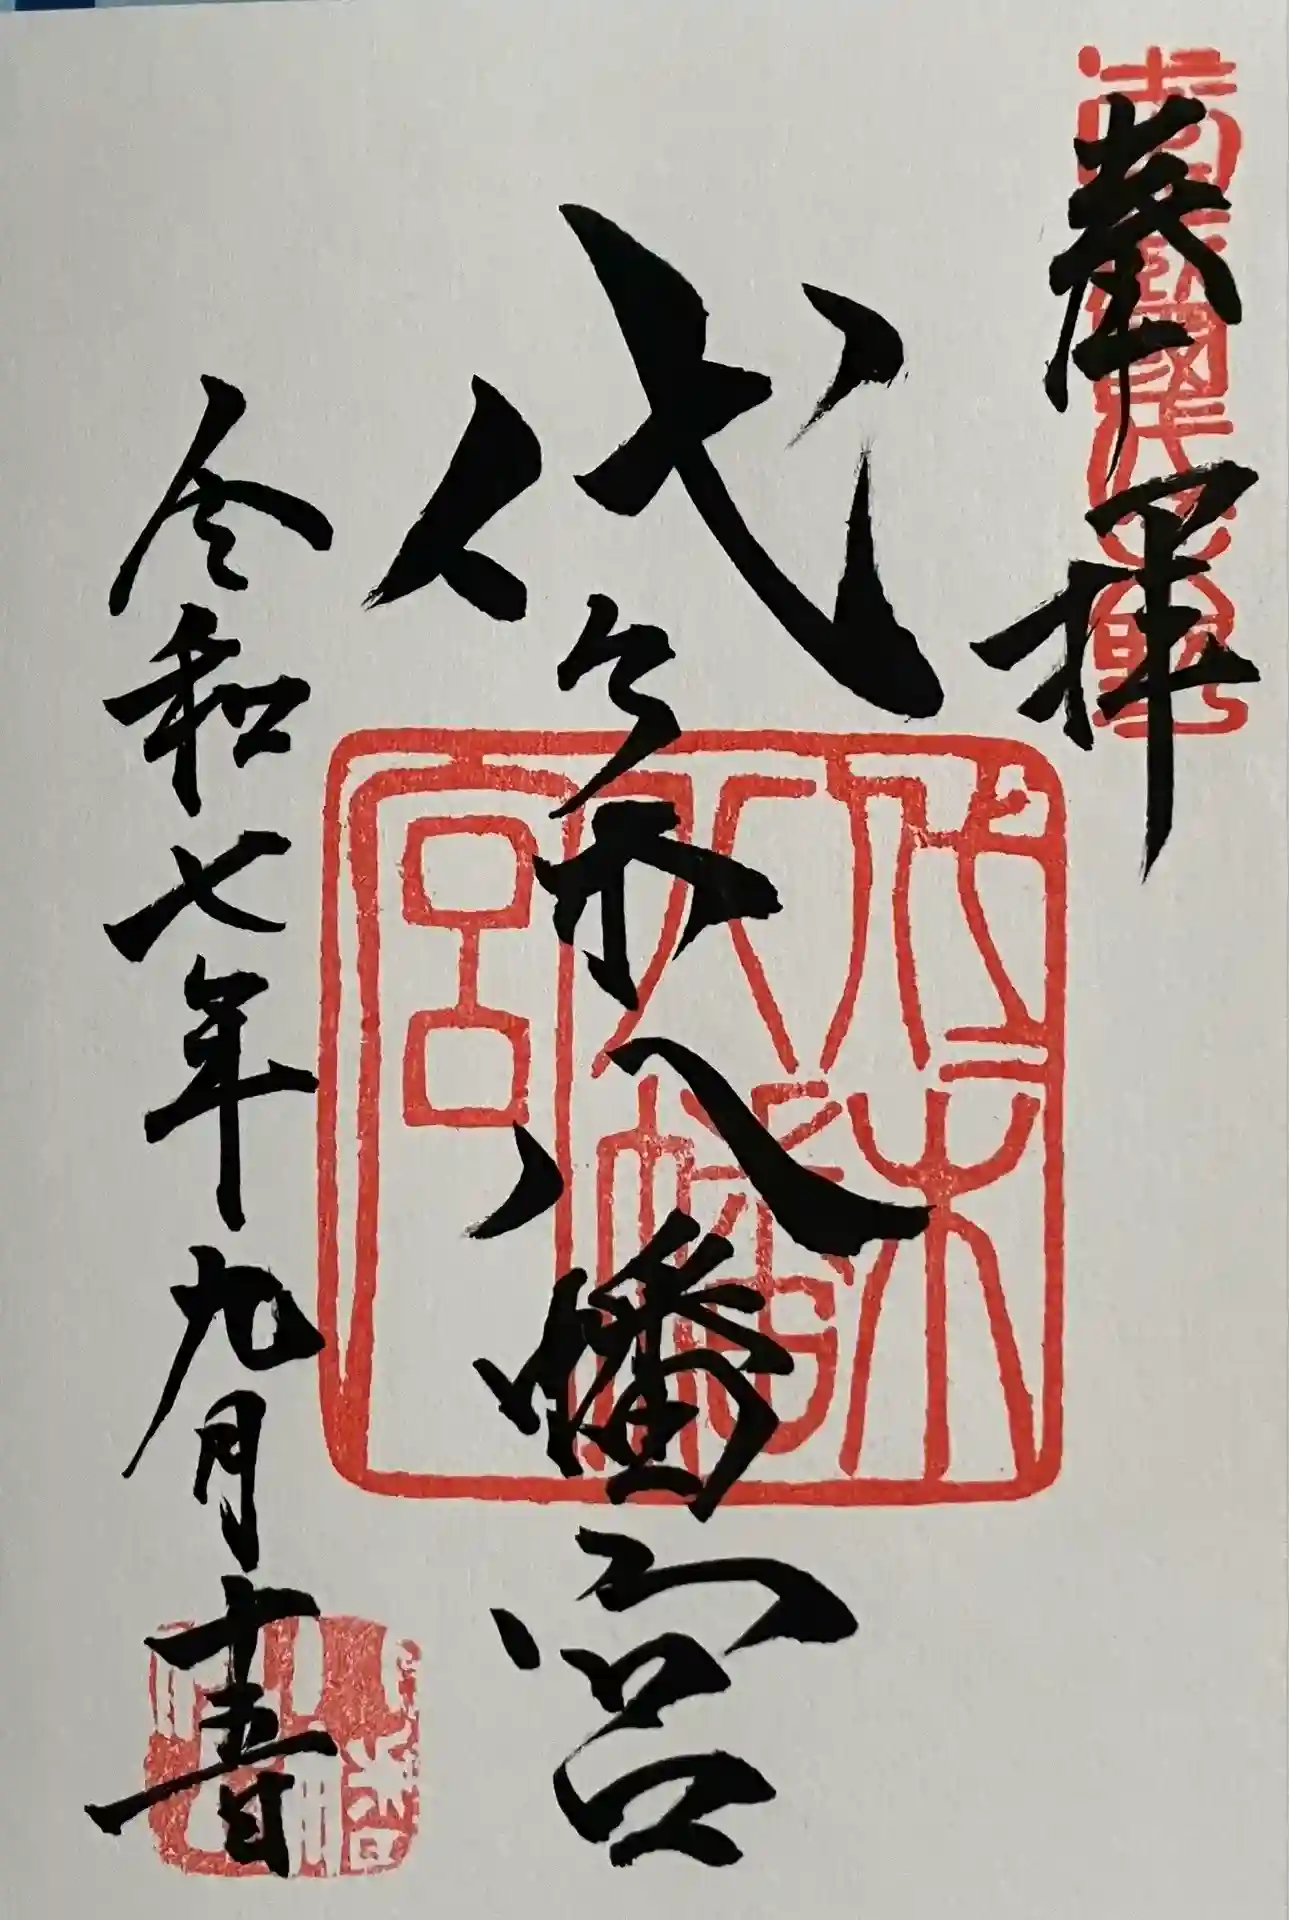 奉拝
代々木八幡宮
令和七年九月十五日
代々木八幡宮